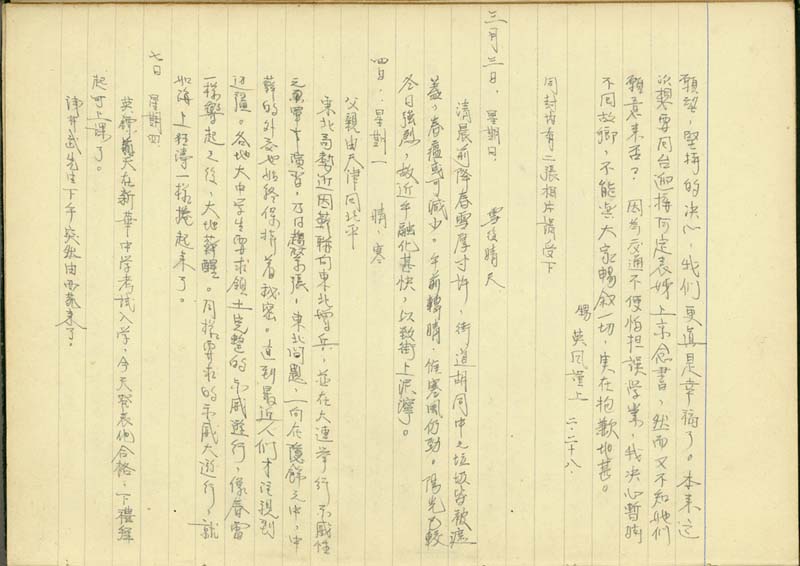 願望，堅持的决心，我們更真是幸福了。本来这
次想要同台迎接何定表姊上京念書，然而又不知她們
願意来否？因為交通不便怕担误学業，我决心暫时
不回故鄉，不能與大家暢敘一切，实在抱歉地甚。
弟 英 同謹上 二．二十八．
同封内有二張相片請受下
三月三日， 星期日． 雪後晴天
清晨前降春雪厚寸許，街道胡同中之垃圾皆被遮
蓋，春瘟或可減少。午前轉晴，惟寒風仍勁。陽光力較
冬日強烈，故近午融化甚快，以致街上泥濘。
四日， 星期一 晴，寒
父親由天津回北平
東北局勢近因蘇聯向東北增兵，並在大連举行示威性
之軍事演習，乃日趨緊張，東北问題，一向在隱餘之中，中
蘇的外交也始终保持着秘密。直到最近人们才注視到
这疆。各地大中学生要求領土完整的示威遊行，像春雷
一様響起之後，大地蘇醒。同様要求的示威大遊行，就
如海上狂濤一様捲起来了。
七日 星期四
英傑前天在新華中学考試入学，今天發表他合格，下禮拜
起可上課了。
津井武先生下午突然由西苑来了。